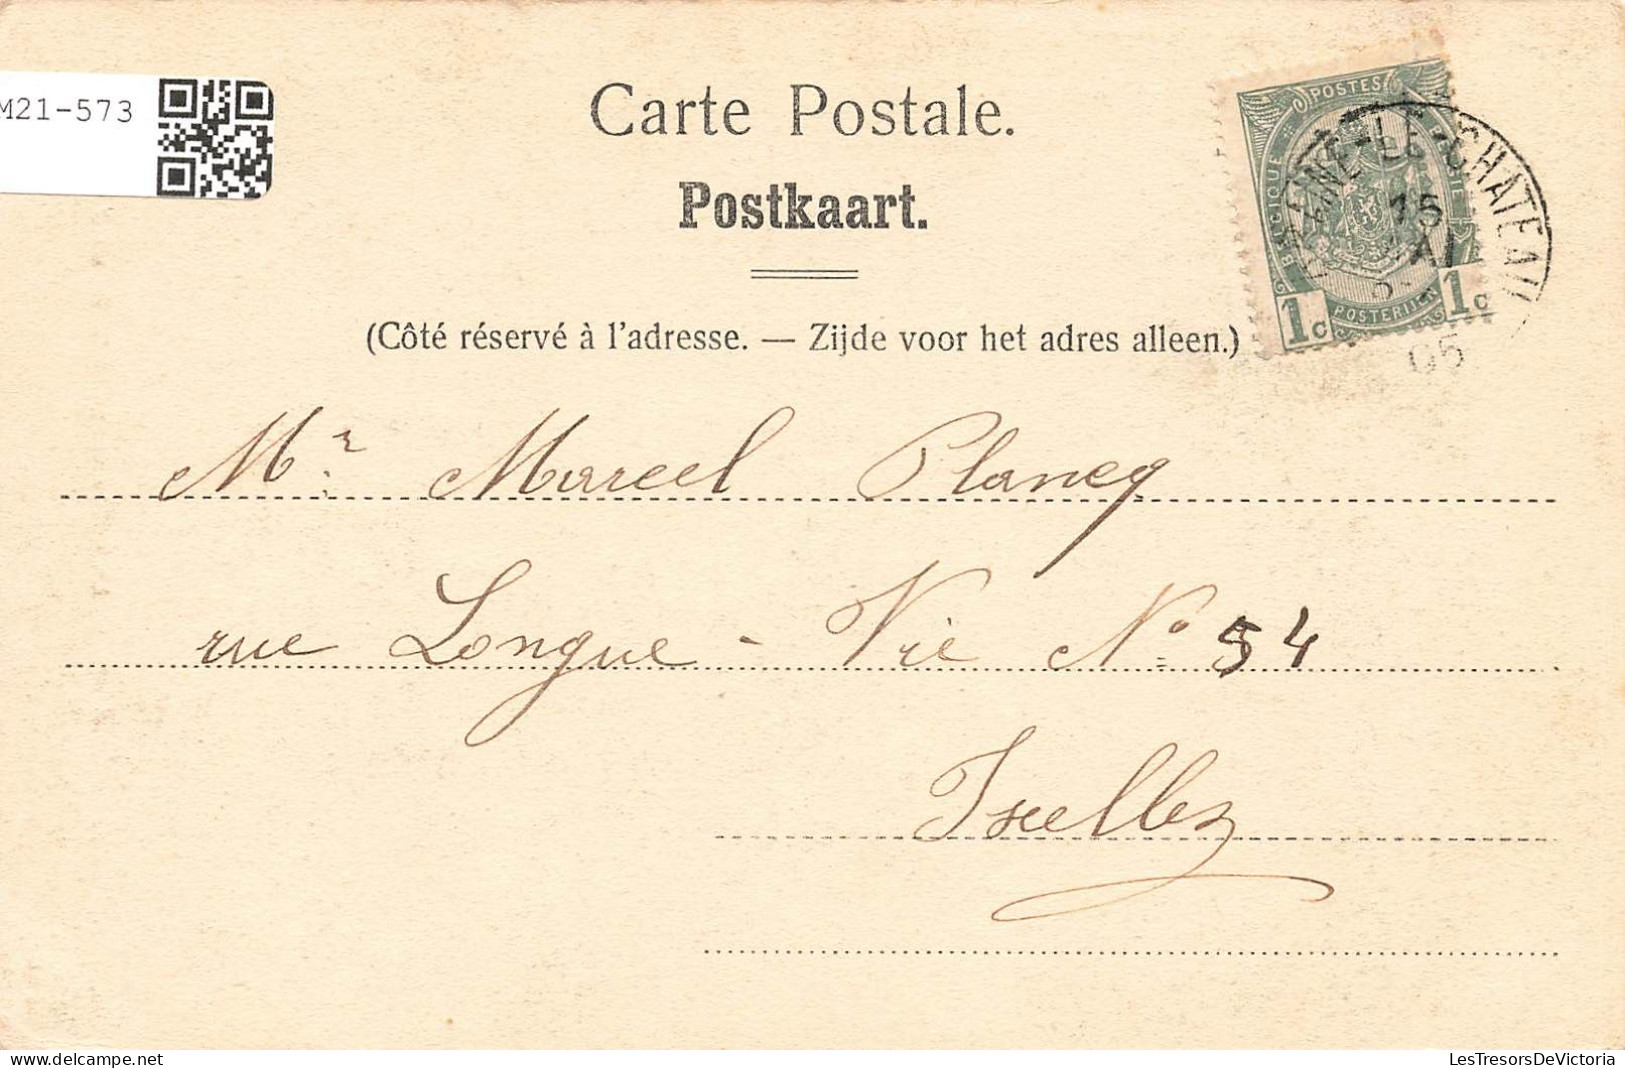 M21-573
Carte Postale.
Postkaart.
(Côté réservé à l'adresse. — Zijde voor het adres alleen.)
POSTES
BELGIQUE
POSTERIJEN
1c 1c
BRAINE-LE-CHATEAU
15
MAI
05
Mr. Marcel Plancq
rue Longue - Vie No 54
Ixelles
LesTresorsDeVictoria